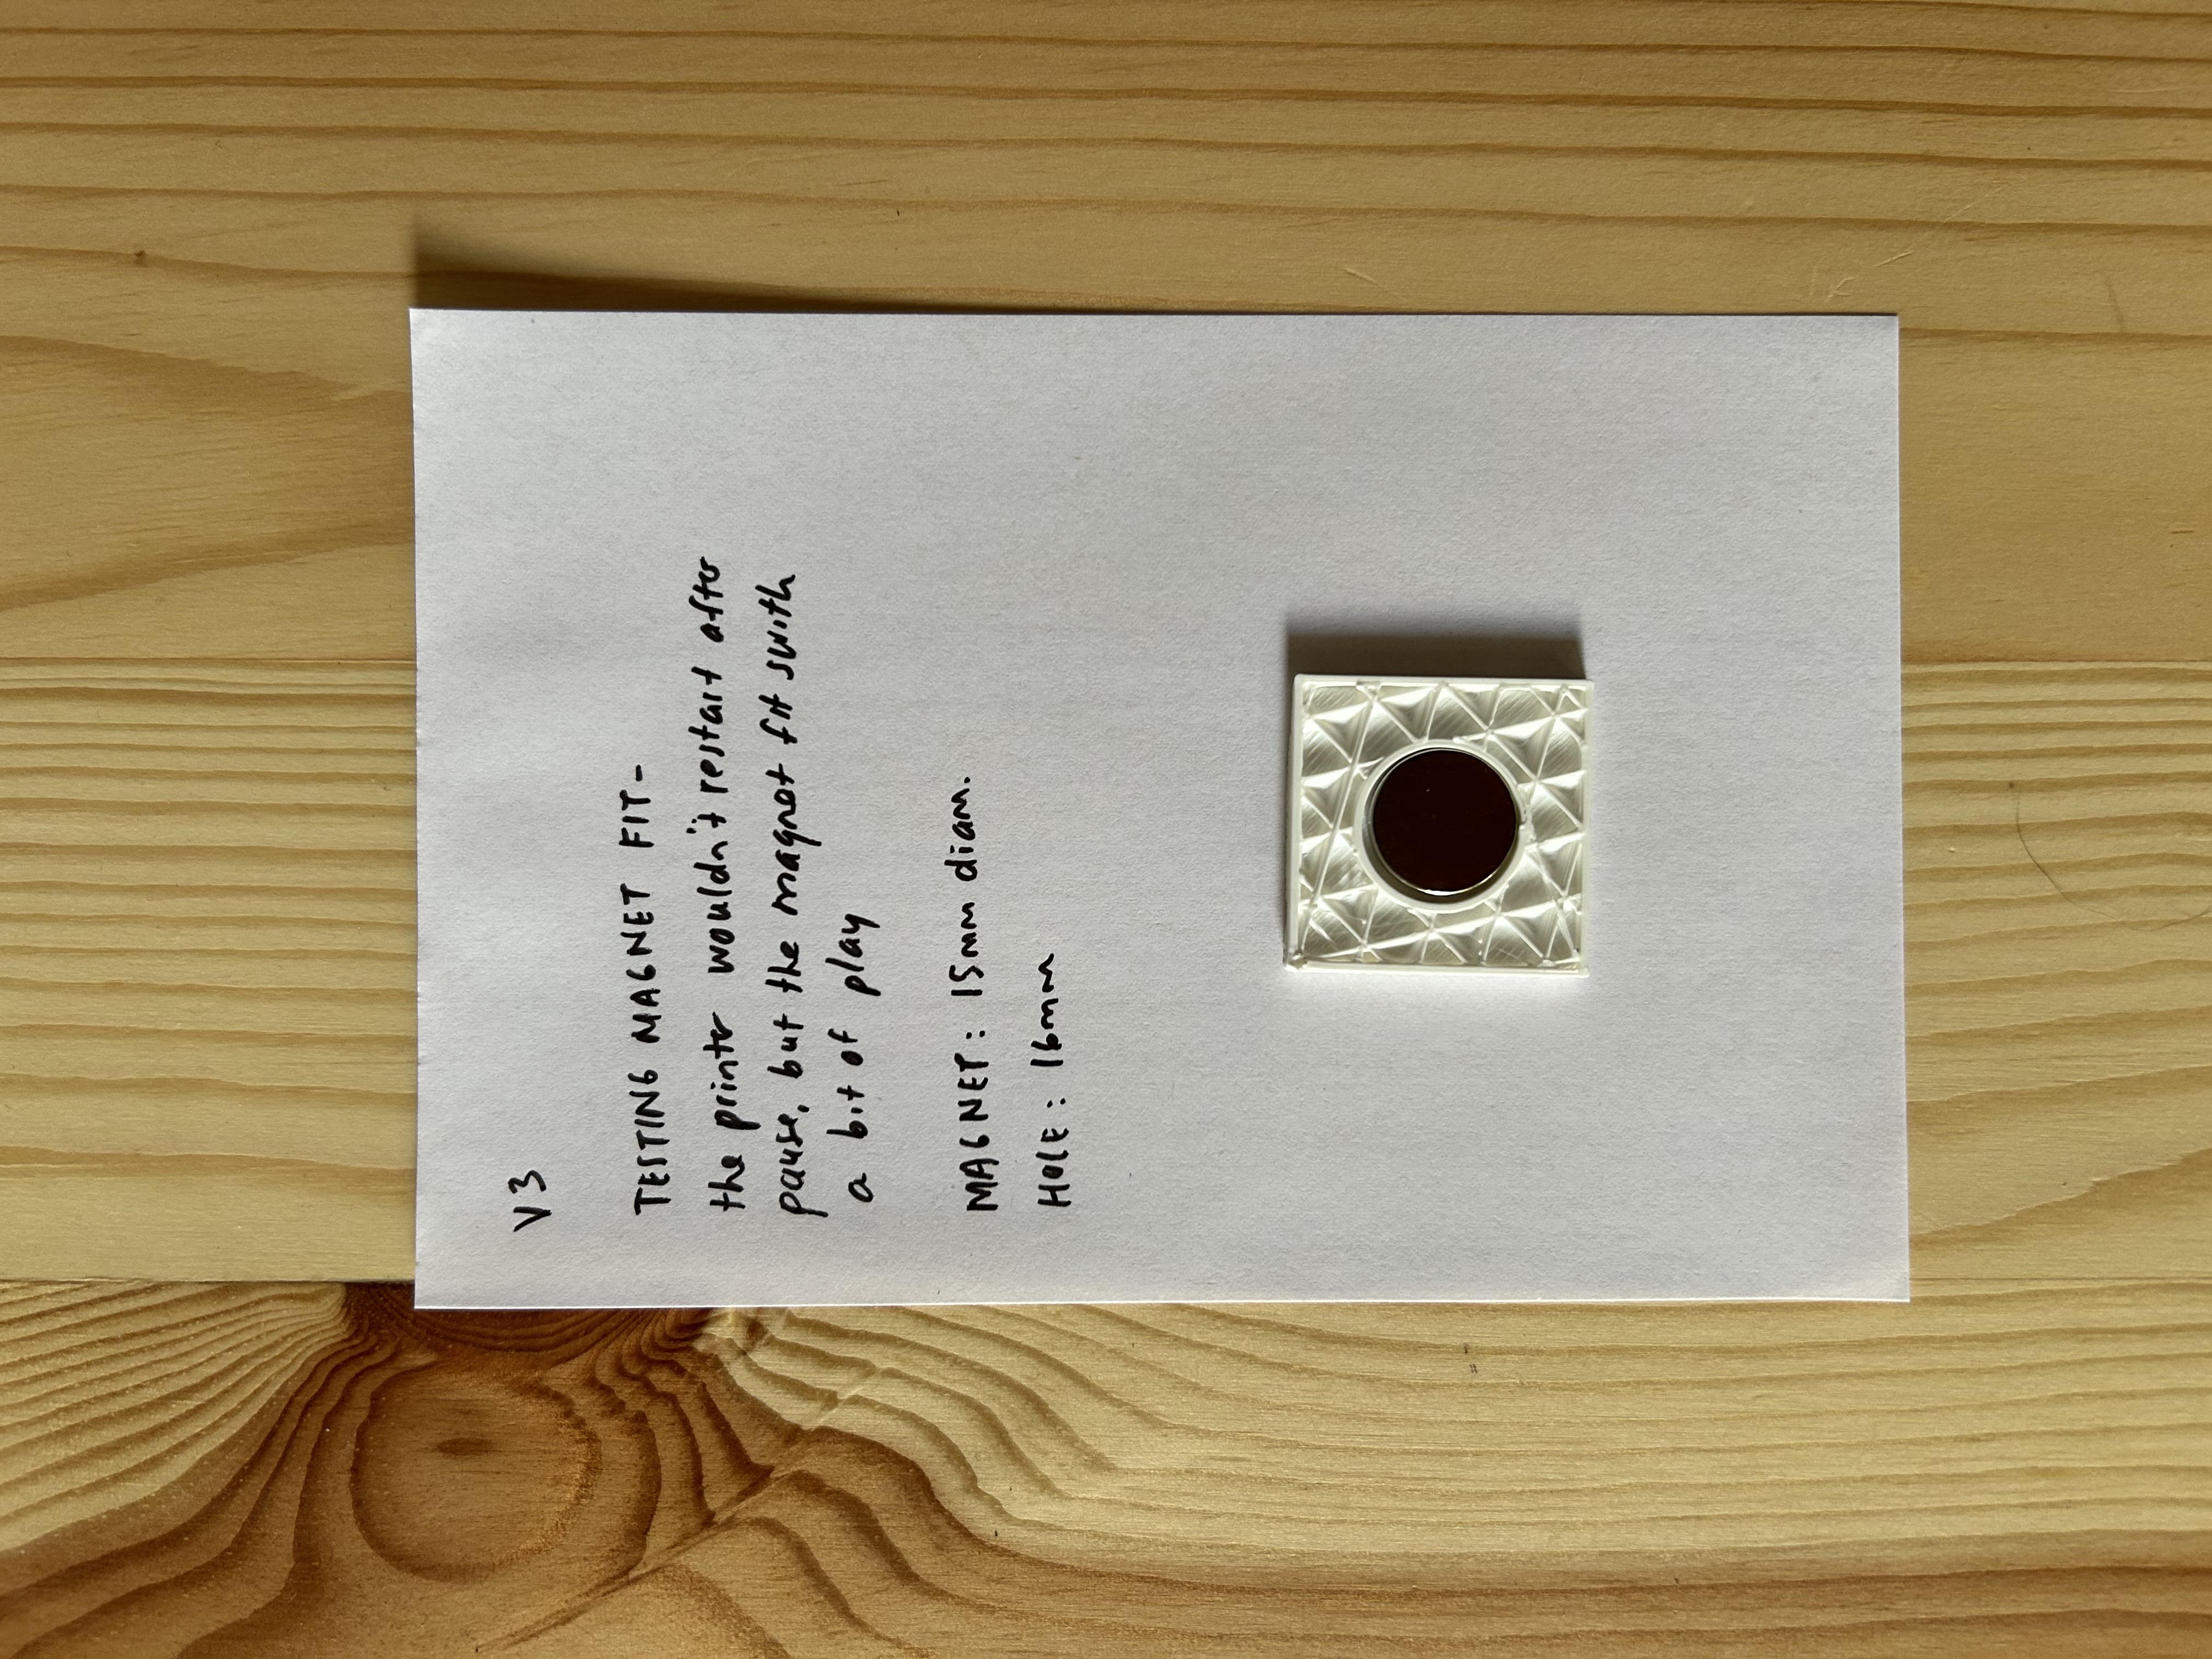 V3
TESTING MAGNET FIT-
the printer wouldn't restart after
pause, but the magnet fit swith
a bit of play
MAGNET: 15mm diam.
HOLE: 16mm